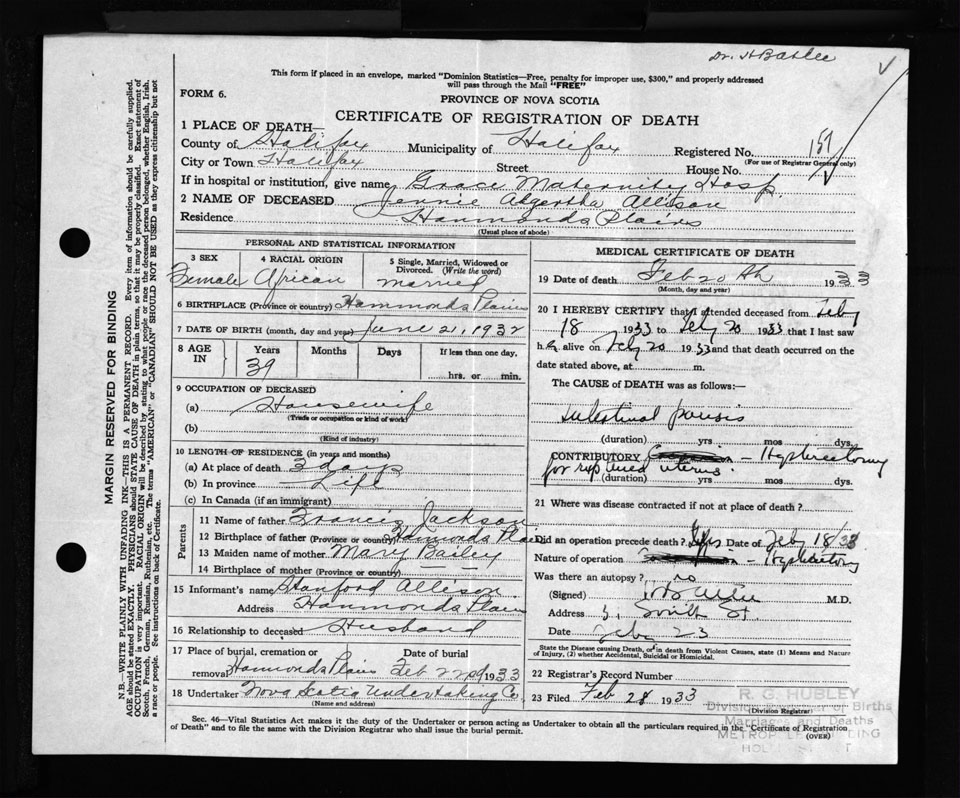 Dr. H Batlee
This form if placed in an envelope, marked "Dominion Statistics—Free, penalty for improper use, $300," and properly addressed
will pass through the Mail "FREE"
FORM 6.
PROVINCE OF NOVA SCOTIA
CERTIFICATE OF REGISTRATION OF DEATH
1 PLACE OF DEATH—
County of Halifax Municipality of Halifax Registered No. 157
(For use of Registrar General only)
City or Town Halifax Street House No.
If in hospital or institution, give name Grace Maternity Hosp.
2 NAME OF DECEASED Jennie Algertha Allison
Residence Hammonds Plains
(Usual place of abode)
PERSONAL AND STATISTICAL INFORMATION
3 SEX 4 RACIAL ORIGIN 5 Single, Married, Widowed or Divorced. (Write the word)
Female African married
6 BIRTHPLACE (Province or country) Hammonds Plains
7 DATE OF BIRTH (month, day and year) June 21, 1932
8 AGE IN Years Months Days If less than one day.
39 hrs. or min.
9 OCCUPATION OF DECEASED
(a) Housewife
(Trade or occupation or kind of work)
(b)
(Kind of industry)
10 LENGTH OF RESIDENCE (in years and months)
(a) At place of death 3 days
(b) In province Life
(c) In Canada (if an immigrant)
Parents
11 Name of father Francis Jackson
12 Birthplace of father (Province or country) Hamonds Plain
13 Maiden name of mother Mary Bailey
14 Birthplace of mother (Province or country) — —
15 Informant's name Stanford Allison
Address Hammonds Plain
16 Relationship to deceased Husband
17 Place of burial, cremation or removal Date of burial
Hammonds Plains Feb 22nd 1933
18 Undertaker Nova Scotia Undertaking Co.
(Name and address)
MEDICAL CERTIFICATE OF DEATH
19 Date of death Feb 20th 1933
(Month, day and year)
20 I HEREBY CERTIFY that I attended deceased from Feby
18 1933 to Feby 20 1933 that I last saw
h alive on Feby 20 1933 and that death occurred on the
date stated above, at m.
The CAUSE of DEATH was as follows:
intestinal paresis
(duration) yrs mos dys.
CONTRIBUTORY — Hysterectomy
for ruptured uterus.
(duration) yrs. mos. dys.
21 Where was disease contracted if not at place of death?
Did an operation precede death? Yes Date of Feby 18/33
Nature of operation — Hysterectomy
Was there an autopsy? no
(Signed) M.D.
Address South St.
Date Feby 23
State the Disease causing Death, or in death from Violent Causes, state (1) Means and Nature
of Injury, (2) whether Accidental, Suicidal or Homicidal.
22 Registrar's Record Number
23 Filed Feb 28 1933
Division Registrar
R. G. HUBLEY
Division Registrar of Births
Marriages and Deaths
Sec. 46—Vital Statistics Act makes it the duty of the Undertaker or person acting as Undertaker to obtain all the particulars required in the "Certificate of Registration
of Death" and to file the same with the Division Registrar who shall issue the burial permit.
(OVER)
MARGIN RESERVED FOR BINDING
N.B.—WRITE PLAINLY WITH UNFADING INK—THIS IS A PERMANENT RECORD. Every item of information should be carefully supplied.
AGE should be stated EXACTLY. PHYSICIANS should STATE CAUSE OF DEATH in plain terms, so that it may be properly classified. Exact statement of
OCCUPATION is very important. RACIAL ORIGIN will be described by stating to what people or race the deceased person belonged, whether English, Irish,
Scotch, French, German, Russian, Ruthenian, etc. The terms "AMERICAN" or "CANADIAN" SHOULD NOT BE USED as they express citizenship but not
a race or people. See instructions on back of Certificate.